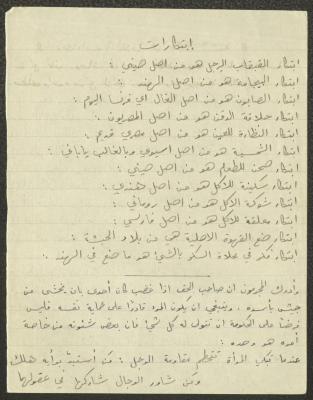 إبتكارات
ابتكار القبقاب للرجل هو من اصل صيني :
ابتكار البيجامة هو من اصل الهند :
ابتكار الصابون هو من اصل الغال اي فرنسا اليوم :
ابتكار حلاقة الذقن هو من اصل المصريون :
ابتكار النظارة للعين هو من اصل صيني قديم :
ابتكار الشمسية هو من اصل اسيوي وبالغالب ياباني :
ابتكار صحن للطعام هو من اصل صيني :
ابتكار سكينة للأكل هو من اصل هندي :
ابتكار شوكة الاكل هو من اصل روماني :
ابتكار معلقة للأكل هو من اصل فارسي :
ابتكار صنع القهوة الاصلية هي من بلاد الحبشة :
ابتكار فكر في علاوة السكر بالشيء هو ما صنع في الهند :
وأدرك المجرمون ان صاحب الحق اذا غضب كان أحدى بان يخشى من
جيش بأسره . وينبغي ان يكون المرء قادرًا على حماية نفسه فليس
فرضًا على الحكومة ان تتولى له كل شيء فان بعض شئونه من خاصة
أمره هو وحده :
عندما تبكي المرأة تتحطم مقاومة الرجل : من أستبدّ برأيه هلك
ومن شاور الرجال شاركها في عقولها